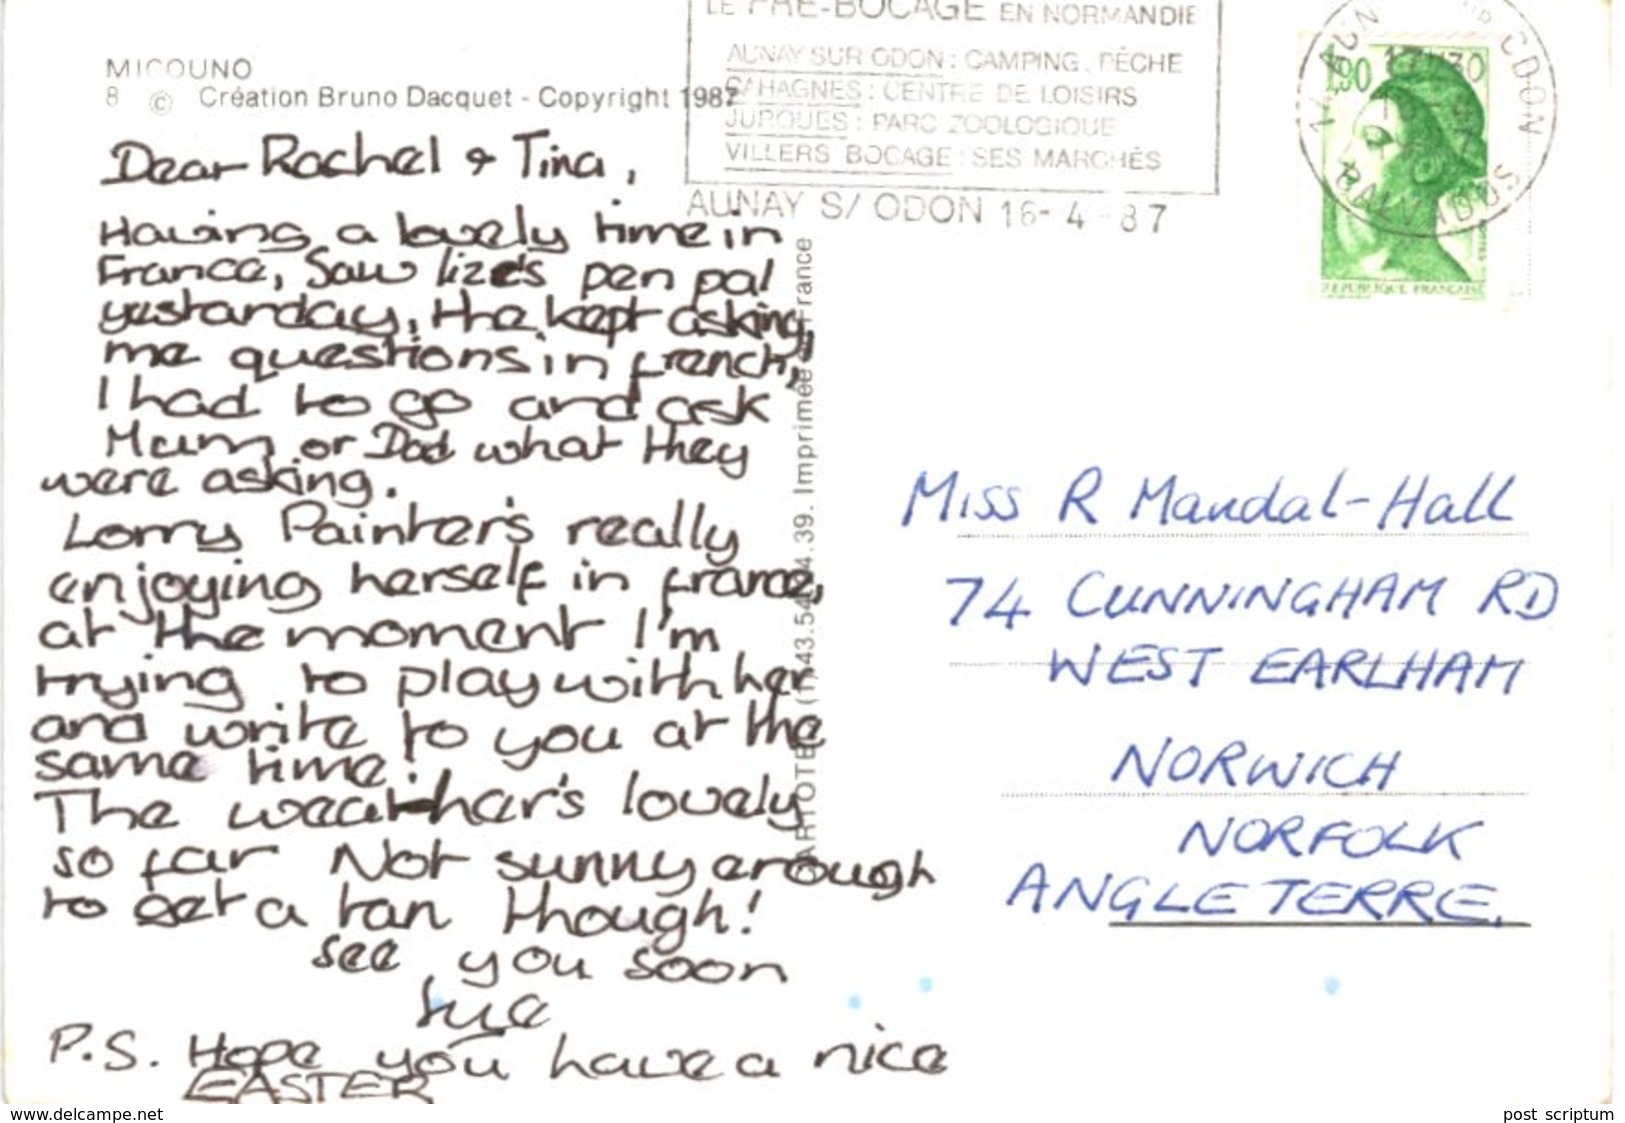 MICOUNO
8 © Création Bruno Dacquet - Copyright 1987
Dear Rachel & Tina,
Having a lovely time in
France, Saw lize's pen pal
yesterday, the kept asking,
me questions in french,
I had to go and ask
Mum or Dad what they
were asking.
Lorry Painter's really
enjoying herself in france,
at the moment I'm
trying to play with her
and write to you at the
same time!
The weather's lovely
so far Not sunny enough
to get a tan though!
see you soon
Sue
P.S. Hope you have a nice
EASTER
LE PRÉ-BOCAGE EN NORMANDIE
AUNAY SUR ODON : CAMPING. PÊCHE
CAHAGNES : CENTRE DE LOISIRS
JURQUES : PARC ZOOLOGIQUE
VILLERS BOCAGE : SES MARCHÉS
AUNAY S/ ODON 16-4-87
1,90
17H30
ODON
CALVADOS
REPUBLIQUE FRANÇAISE
Imprimée France
Miss R Mandal-Hall
74 CUNNINGHAM RD
WEST EARLHAM
NORWICH
NORFOLK
ANGLETERRE.
www.delcampe.net
post scriptum